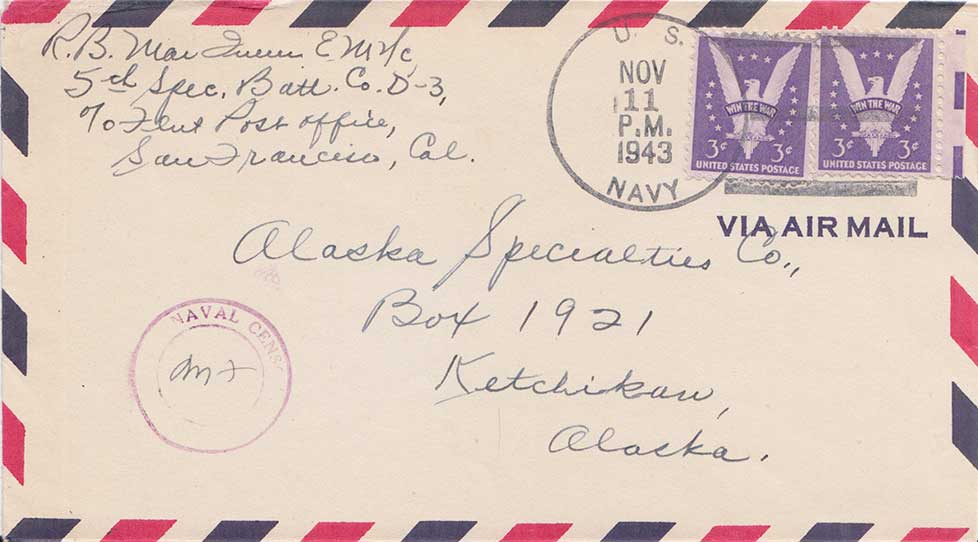 R. B. Mac EM 1/c,
5th Spec. Batt. Co. D-3,
℅ Fleet Post office,
San Francisco, Cal.
U. S.
NOV
11
P.M.
1943
NAVY
WIN THE WAR
3¢ 3¢
UNITED STATES POSTAGE
WIN THE WAR
3¢ 3¢
UNITED STATES POSTAGE
VIA AIR MAIL
Alaska Specialties Co.,
Box 1921
Ketchikan,
Alaska.
NAVAL CENS